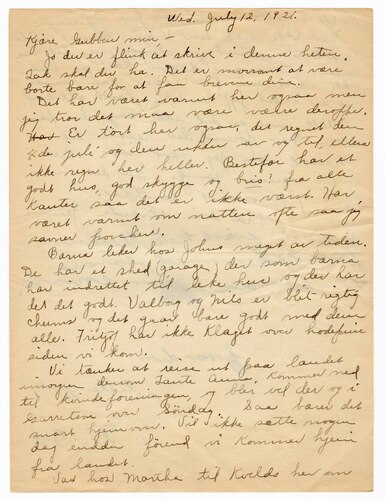 Wed. July 12, 1921.
Kjære Gubben min, -
Jo du er flink at skrive i denne heten.
Tak skal du ha. Det er morsomt at være
borte bare for at faa brevene dine.
Det har været varmt her ogsaa men
jeg tror det maa være værre deroppe.
Har Er tørt her ogsaa, det regnet den
4de juli og den uken av og til, ellers
ikke regn her heller. Bestefar har et
godt hus, god skygge og bris? fra alle
kanter saa det er ikke værst. Har
været varmt om natten ofte saa jeg
savner porchen.
Barna leker hos Johns meget av tiden.
De har et shed (garage) der som barna
har indrettet til leke hus og der har
det det godt. Valborg og Nils er blit rigtig
chums og det graar bare godt med dem
alle. Fritjof har ikke klaget over hodepine
siden vi kom.
Vi tænker at reise ut paa landet
imorgen dersom Tante Anna kommer med
til kvindeforeningen, og blir vel der og i
Garretson over Søndag. Saa bærer det
snart hjemover. Vil ikke sætte nogen
dag endda førend vi kommer hjem
fra landet.
Var hos Martha til kvelds her om